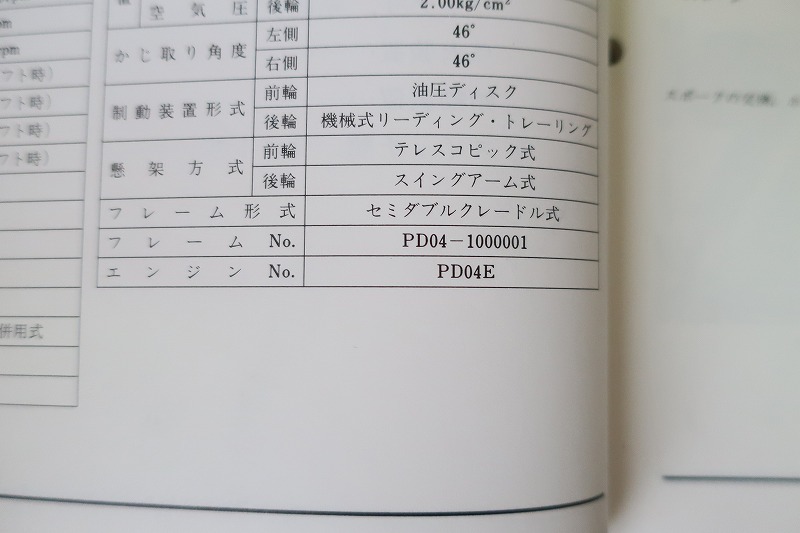 空気圧 後輪 2.00kg/cm²
かじ取り角度 左側 46°
右側 46°
制動装置形式 前輪 油圧ディスク
後輪 機械式リーディング・トレーリング
懸架方式 前輪 テレスコピック式
後輪 スイングアーム式
フレーム形式 セミダブルクレードル式
フレーム No. PD04−1000001
エンジン No. PD04E
rpm
フト時)
フト時)
フト時)
フト時)
併用式